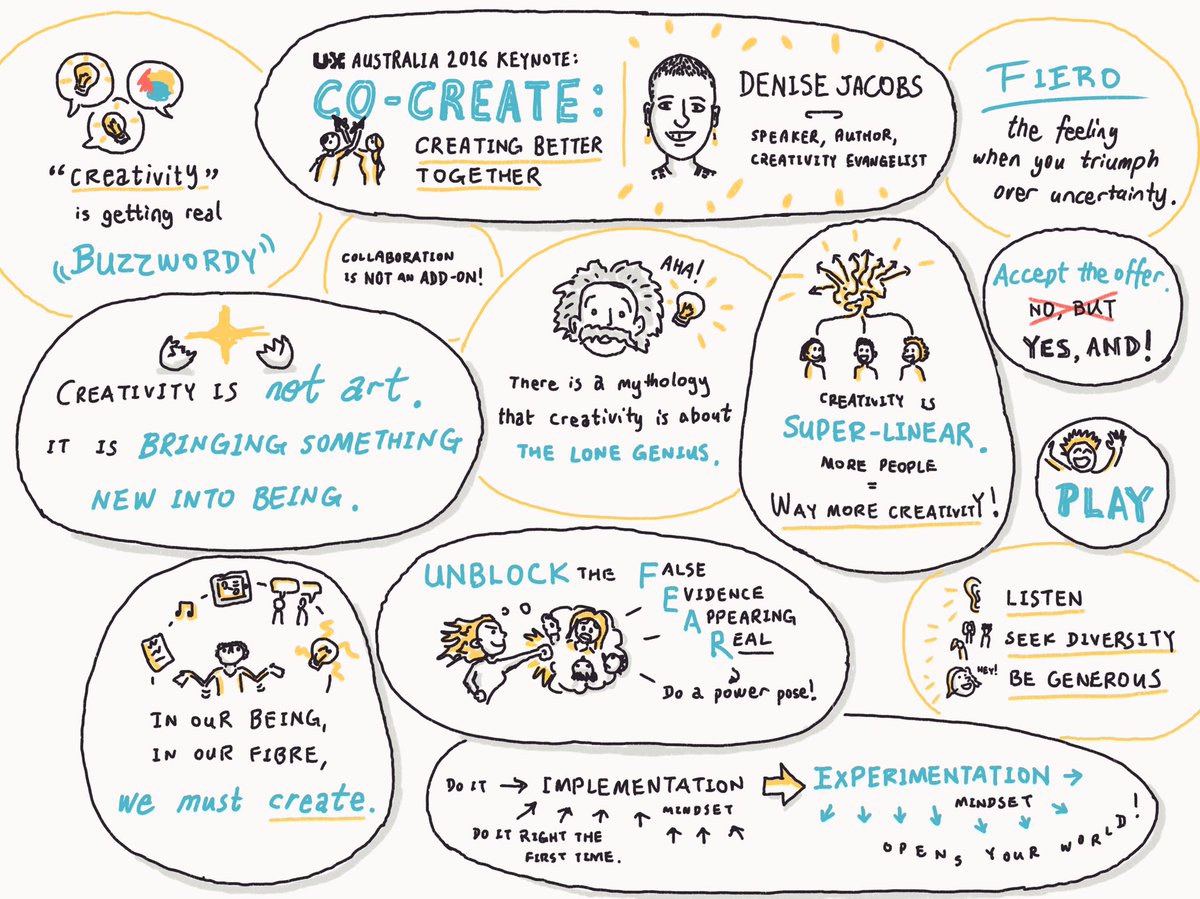 UX AUSTRALIA 2016 KEYNOTE:
CO-CREATE:
CREATING BETTER
TOGETHER
DENISE JACOBS
SPEAKER, AUTHOR,
CREATIVITY EVANGELIST
"creativity"
is getting real
BUZZWORDY
FIERO
the feeling
when you triumph
over uncertainty.
COLLABORATION
IS NOT AN ADD-ON!
AHA!
There is a mythology
that creativity is about
THE LONE GENIUS.
CREATIVITY IS
SUPER-LINEAR.
MORE PEOPLE
=
WAY MORE CREATIVITY!
Accept the offer.
NO, BUT
YES, AND!
CREATIVITY IS not art.
IT IS BRINGING SOMETHING
NEW INTO BEING.
PLAY
IN OUR BEING,
IN OUR FIBRE,
we must create.
UNBLOCK THE FALSE
EVIDENCE
APPEARING
REAL
Do a power pose!
LISTEN
SEEK DIVERSITY
HEY!
BE GENEROUS
DO IT → IMPLEMENTATION
MINDSET
DO IT RIGHT THE
FIRST TIME.
EXPERIMENTATION →
MINDSET
OPENS YOUR WORLD!